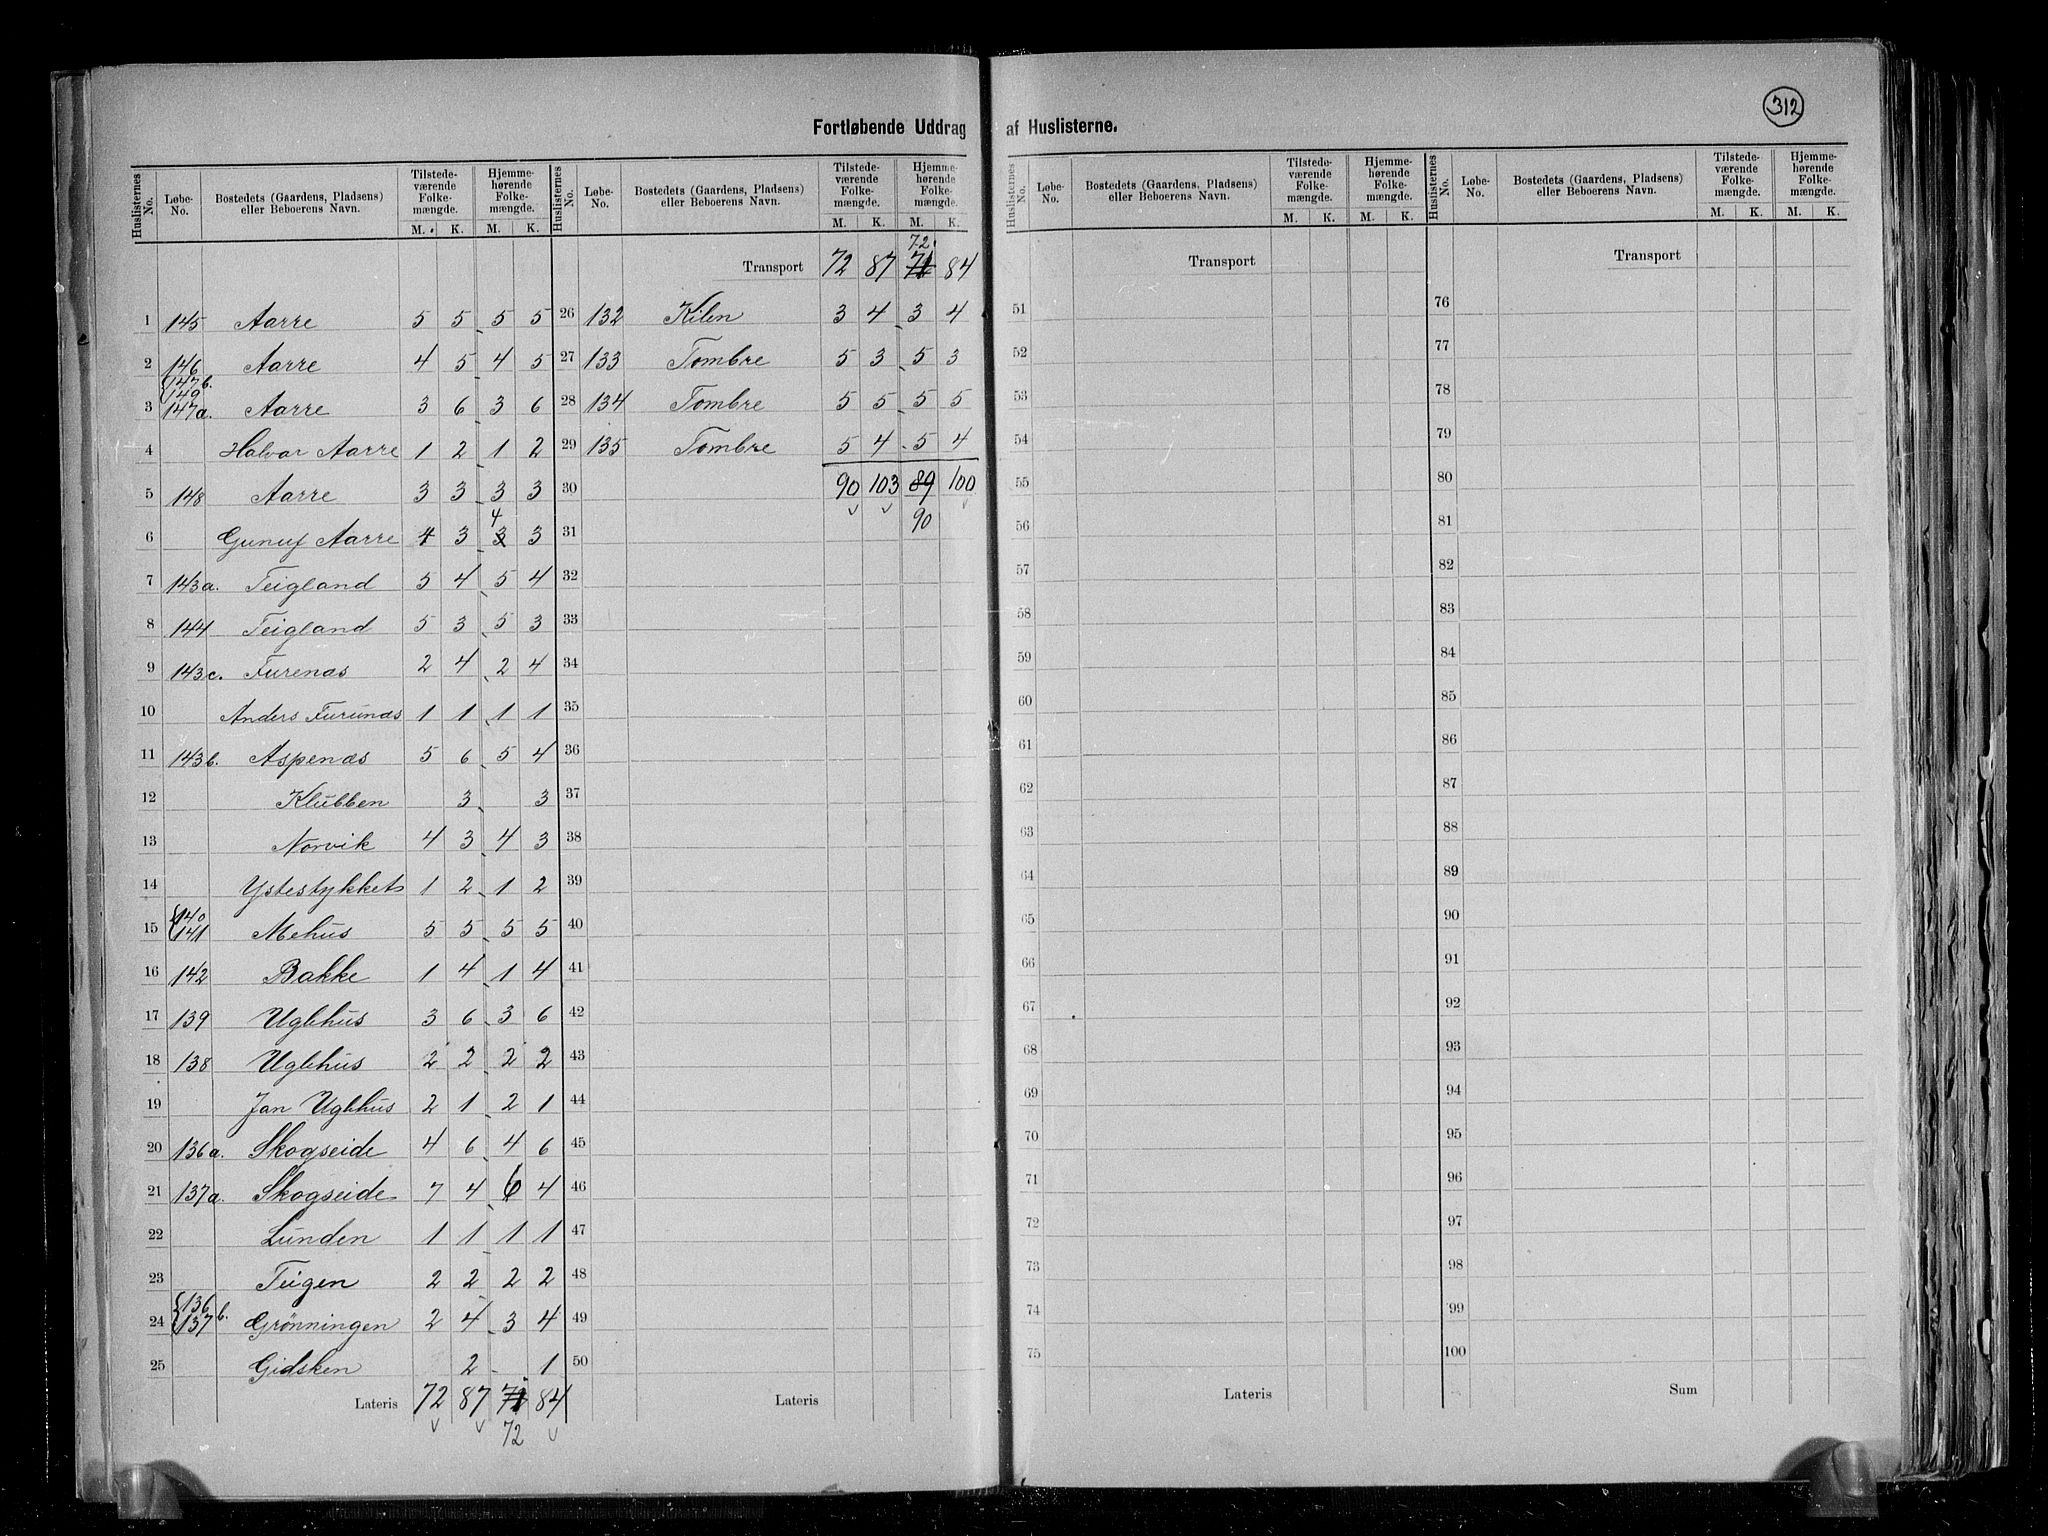 312
Fortløbende Uddrag af Huslisterne.
Huslisternes No. | Løbe-No. | Bostedets (Gaardens, Pladsens) eller Beboerens Navn. | Tilstedeværende Folkemængde. M. K. | Hjemmehørende Folkemængde. M. K.
1 145 Aarre 5 5 5 5
2 146 Aarre 4 5 4 5
3 {147b. 149 147a. Aarre 3 6 3 6
4 Halvar Aarre 1 2 1 2
5 148 Aarre 3 3 3 3
6 Gunuf Aarre 4 3 3 4 3
7 143a. Teigland 5 4 5 4
8 144 Teigland 5 3 5 3
9 143c. Furenæs 2 4 2 4
10 Anders Furunæs 1 1 1 1
11 143b. Aspenæs 5 6 5 4
12 Klubben 3 3
13 Norvik 4 3 4 3
14 Ystestykket 1 2 1 2
15 {140 141 Mehus 5 5 5 5
16 142 Bakke 1 4 1 4
17 139 Uglehus 3 6 3 6
18 138 Uglehus 2 2 2 2
19 Jan Uglehus 2 1 2 1
20 136a. Skogseide 4 6 4 6
21 137a. Skogseide 7 4 6 4
22 Lunden 1 1 1 1
23 Teigen 2 2 2 2
24 {136 137 b. Grönningen 2 4 3 4
25 Gidsken 2 1
Lateris 72 87 71 84
72
Huslisternes No. | Løbe-No. | Bostedets (Gaardens, Pladsens) eller Beboerens Navn. | Tilstedeværende Folkemængde. M. K. | Hjemmehørende Folkemængde. M. K.
72
Transport 72 87 71 84
26 132 Kilen 3 4 3 4
27 133 Tombre 5 3 5 3
28 134 Tombre 5 5 5 5
29 135 Tombre 5 4 5 4
30 90 103 89 100
31 90
32
33
34
35
36
37
38
39
40
41
42
43
44
45
46
47
48
49
50
Lateris
Huslisternes No. | Løbe-No. | Bostedets (Gaardens, Pladsens) eller Beboerens Navn. | Tilstedeværende Folkemængde. M. K. | Hjemmehørende Folkemængde. M. K.
Transport
51
52
53
54
55
56
57
58
59
60
61
62
63
64
65
66
67
68
69
70
71
72
73
74
75
Lateris
Huslisternes No. | Løbe-No. | Bostedets (Gaardens, Pladsens) eller Beboerens Navn. | Tilstedeværende Folkemængde. M. K. | Hjemmehørende Folkemængde. M. K.
Transport
76
77
78
79
80
81
82
83
84
85
86
87
88
89
90
91
92
93
94
95
96
97
98
99
100
Sum